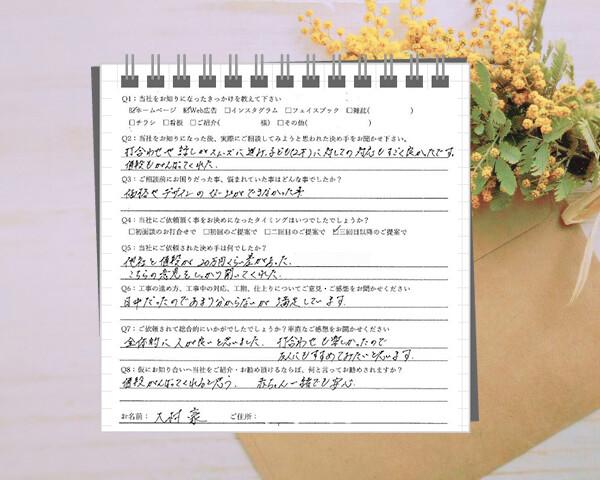 Q1：当社をお知りになったきっかけを教えて下さい
☑ホームページ ☑Web広告 □インスタグラム □フェイスブック □雑誌( )
□チラシ □看板 □ご紹介( 様) □その他( )
Q2：当社をお知りになった後、実際にご相談してみようと思われた決め手をお聞かせ下さい。
打合わせや話しがスムーズに進み、子ども(2才)に対しての対応もすごく良かったです。
値段もがんばってくれた。
Q3：ご相談前にお困りだった事、悩まれていた事はどんな事でしたか？
価格やデザインの
できなかった事
Q4：当社にご依頼頂く事をお決めになったタイミングはいつでしたでしょうか？
□初回面談のお打合せで □初回のご提案で □二回目のご提案で ☑三回目以降のご提案で
Q5：当社にご依頼された決め手は何でしたか？
他社と値段が20万円くらい差があった。
こちらの意見をしっかり聞いてくれた。
Q6：工事の進め方、工事中の対応、工期、仕上りについてご意見・ご感想をお聞かせください
日中だったのであまり分からないが満足しています。
Q7：ご依頼されて総合的にいかがでしたでしょうか？率直なご感想をお聞かせください
全体的に人が良いと思いました。打合わせも楽しかったので
友人にもすすめてみたいと思います。
Q8：仮にお知り合いへ当社をご紹介・お勧め頂けるならば、何と言ってお勧めされますか？
値段がんばってくれると思う。 赤ちゃん一緒でも安心
お名前： 大村 豪 ご住所：